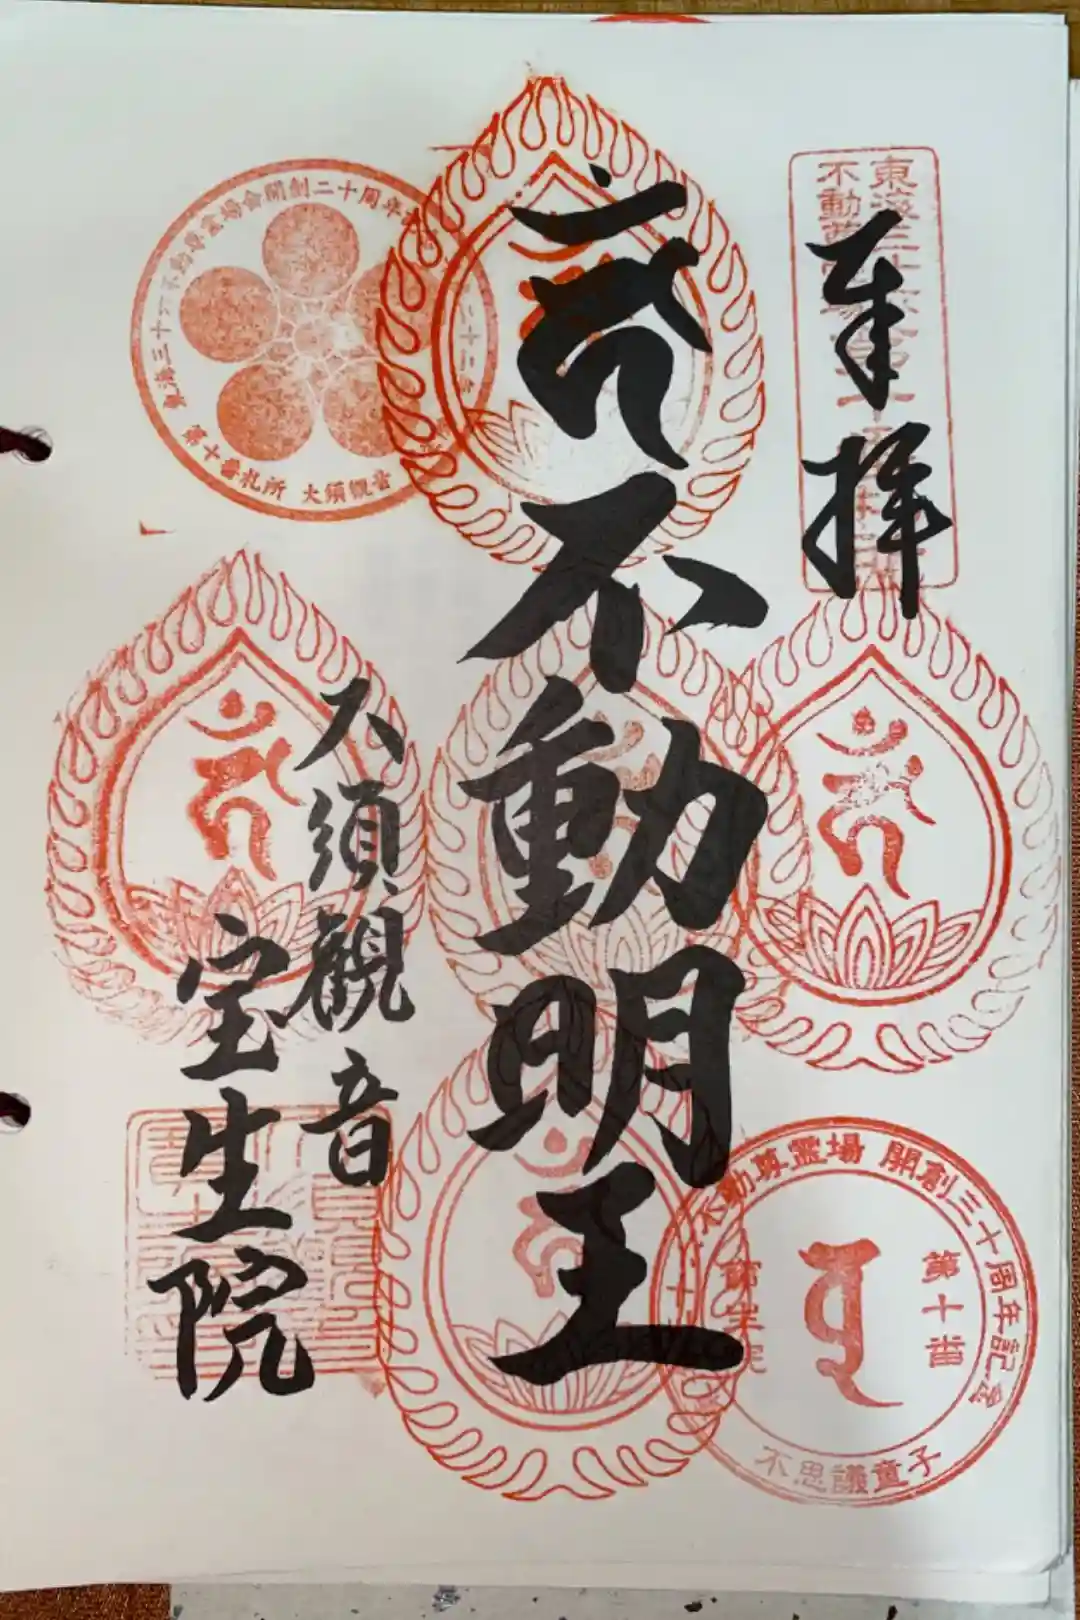 奉拝
不動明王
大須観音
宝生院
東海三十六不動尊霊場会開創二十周年
第十番札所 大須観音
不動尊霊場 開創三十周年記念
第十番
不思議童子